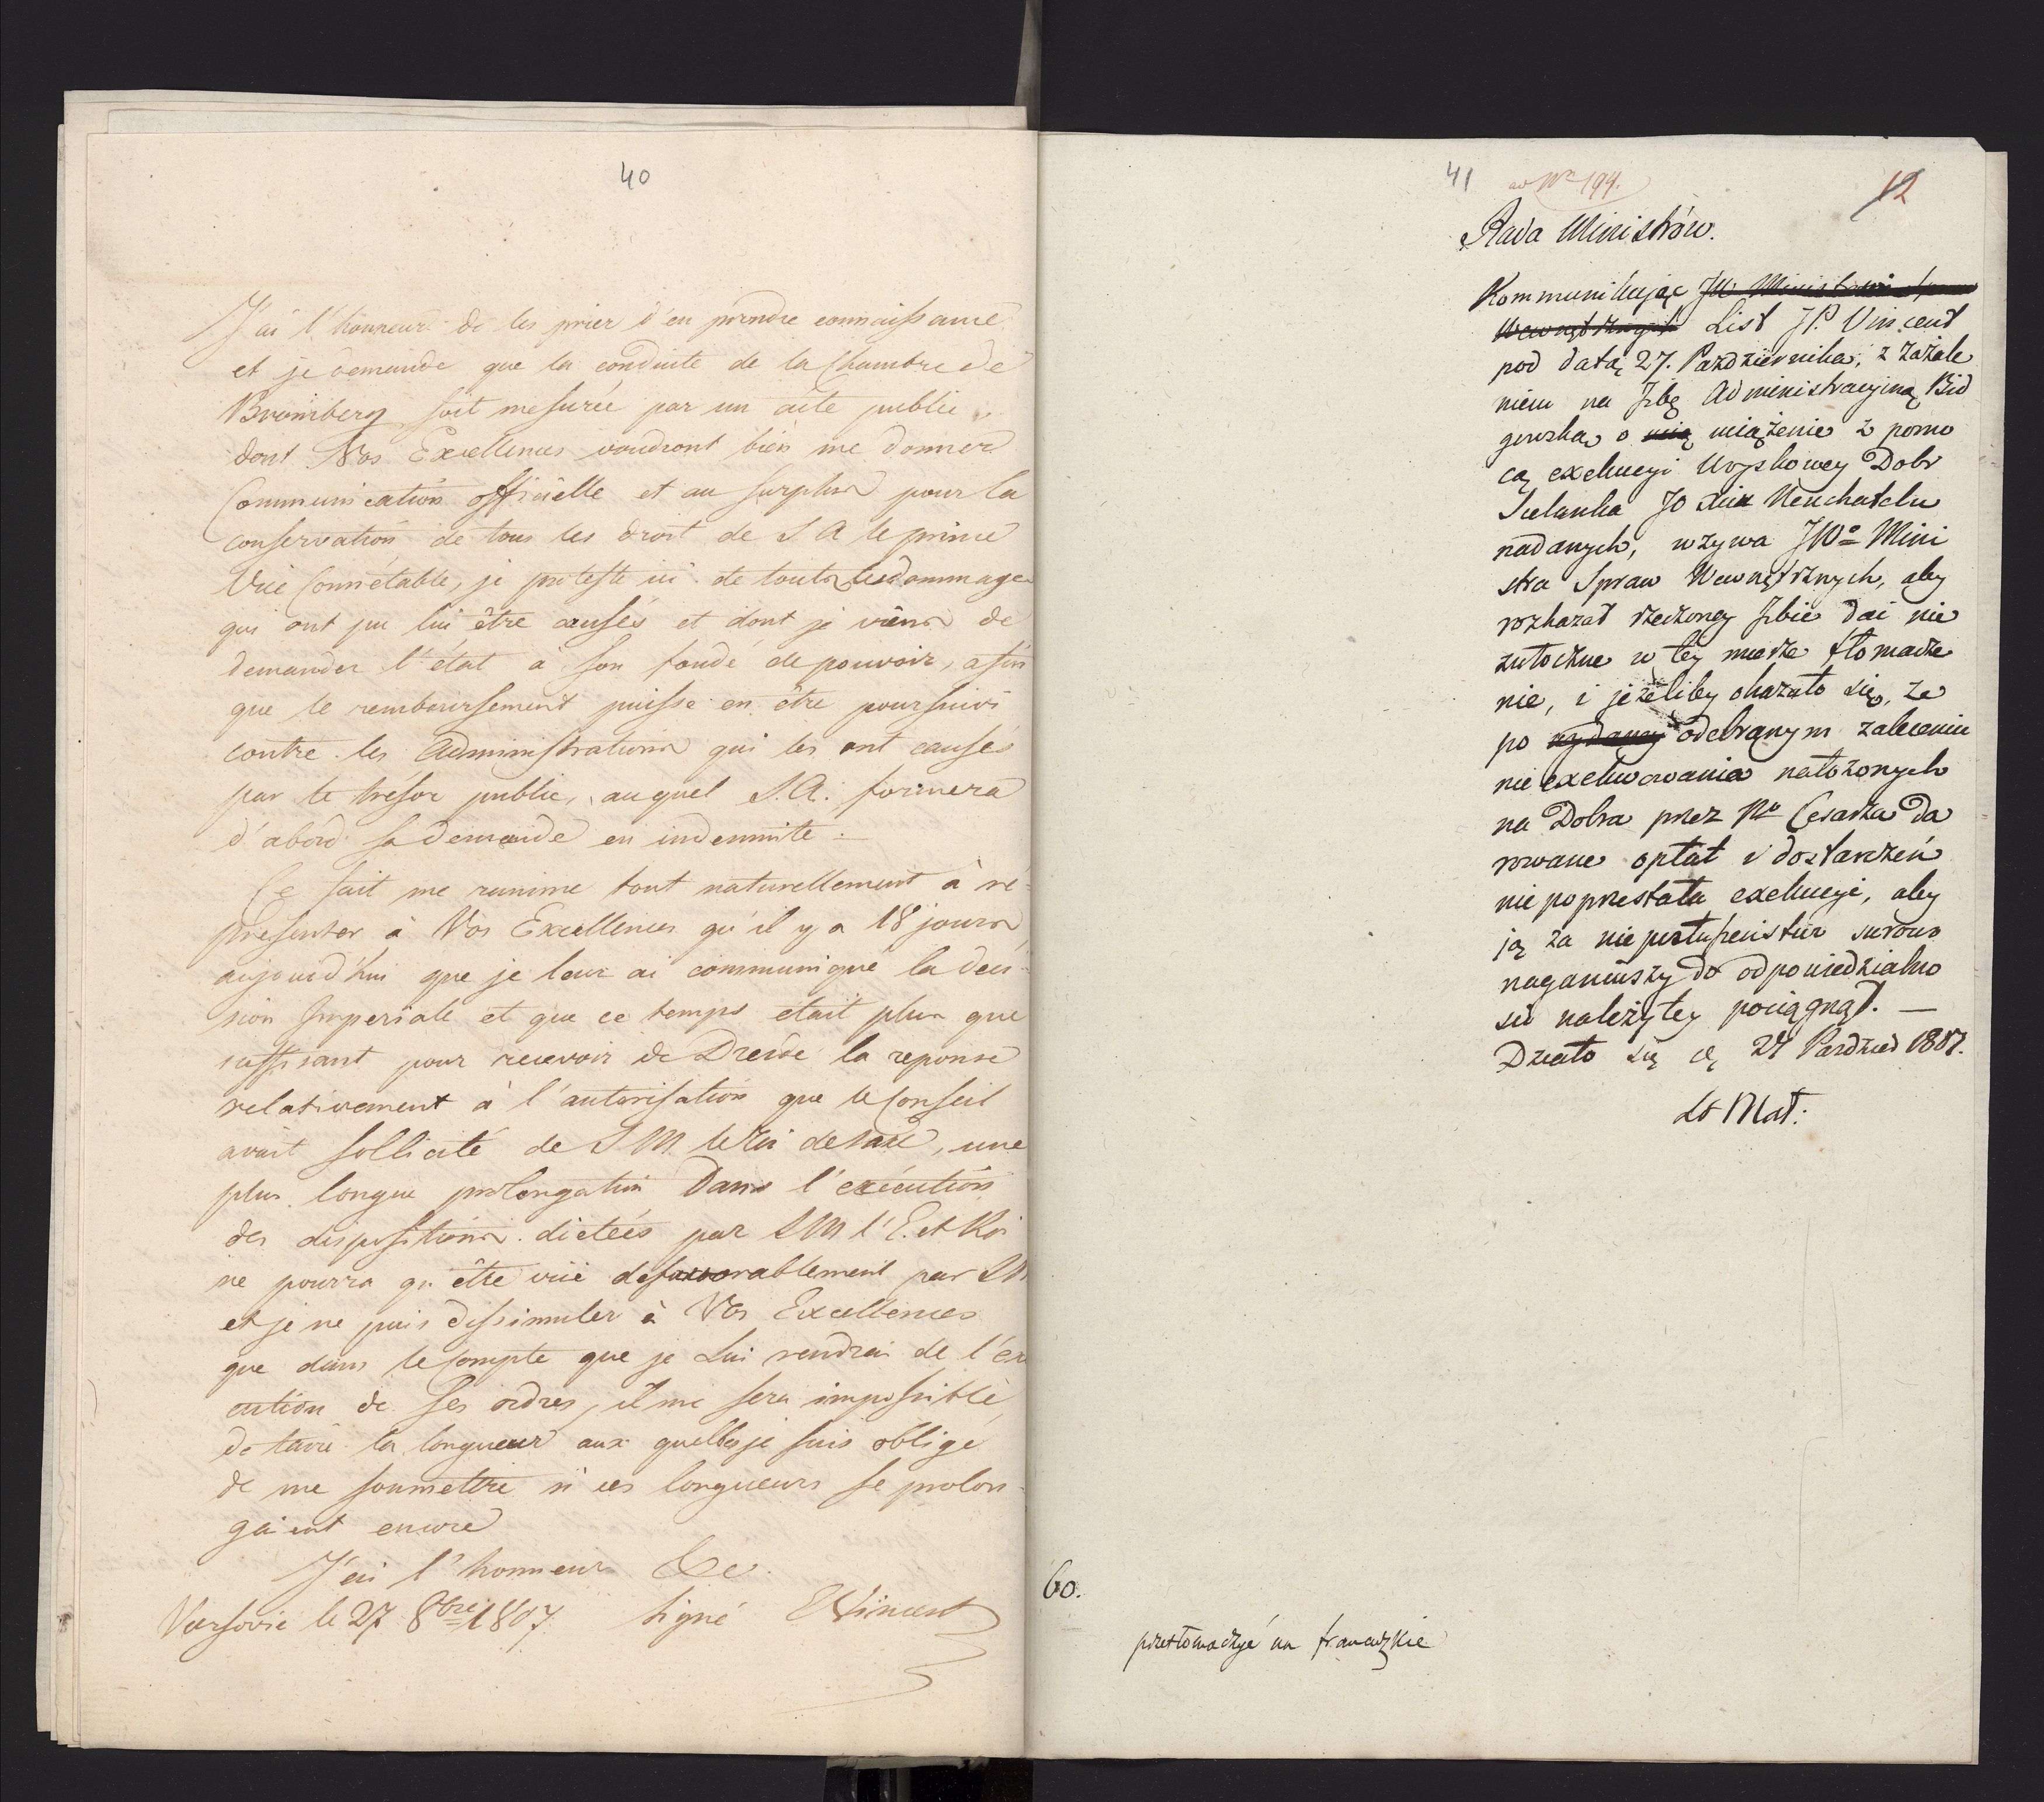 40
J'ai l'honneur de les prier d'en prendre connaissance
et je demande que la conduite de la Chambre de
Bromberg soit mesurée par un acte public,
dont Vos Excellences voudront bien me donner
Communication officielle et au surplus pour la
conservation de tous les droit de S A le prince
Vice Connétable, je proteste ici de touts les dommages
qui ont pu lui être causés et dont je viens de
demander l'état à son fondé de pouvoir, afin
que le remboursement puisse en être poursuivi
contre les Administrations qui les ont causés
par le trésor public, auquel S.A. formera
d'abord sa demande en indemnité.
Ce fait me ramine tout naturellement à re-
présenter à Vos Excellences qu'il y a 18 jours
aujourd'hui que je leur ai communiqué la deci-
sion Imperiale et que ce temps était plus que
suffisant pour recevoir de Dresde la reponse
relativement à l'autorisation que le Conseil
avait sollicité de S M le Roi de Saxe, une
plus longue prolongation Dans l'exécution
des dispositions dictées par S M l'E. et Roi
ne pourra qu'être vüe defavorablement par S M
et je ne puis dissimuler à Vos Excellences
que dans le Compte que je Lui rendrai de l'exé
cution de Ses ordres, il me sera impossible
de taire la longueur aux quelles je suis obligé
de me soumettre si ces longueurs se prolon-
gaient encore
J'ai l'honneur &c.
Varsovie le 27 8bre 1807 signé Vincent
41 ad Nr 194. 12
Rada Ministrów.
Kommunikując JW. Ministrowi Spraw
Wewnętrznych List JP. Vincent
pod datą 27. Pazdziernika, z zażale
niem na Jzbę Administracyjną Bid
goszką o uciążenie z pomo
cą exekucyi Woyskowey Dobr
Sielunka JO Xciu Neuchatelu
nadanych, wzywa JWo Mini
stra Spraw Wewnętrznych, aby
rozkazał rzeczoney Jzbie dać nie
zwłoczne w tey mierze tłomacze
nie, i jeżeliby okazało się, że
po wydaney odebranym zaleceniu
nie exekwowania nałożonych
na Dobra przez Nn Cesarza da
rowane opłat i dostarczeń
nie poprzestała exekucyi, aby
ją za nieposłuszeństwo surowo
naganiwszy do odpowiedzialno
ści należytey pociągnął. —
Działo się d. 27 Pazdzier 1807.
St Mał:
60.
przetłomaczyć na francuzkie